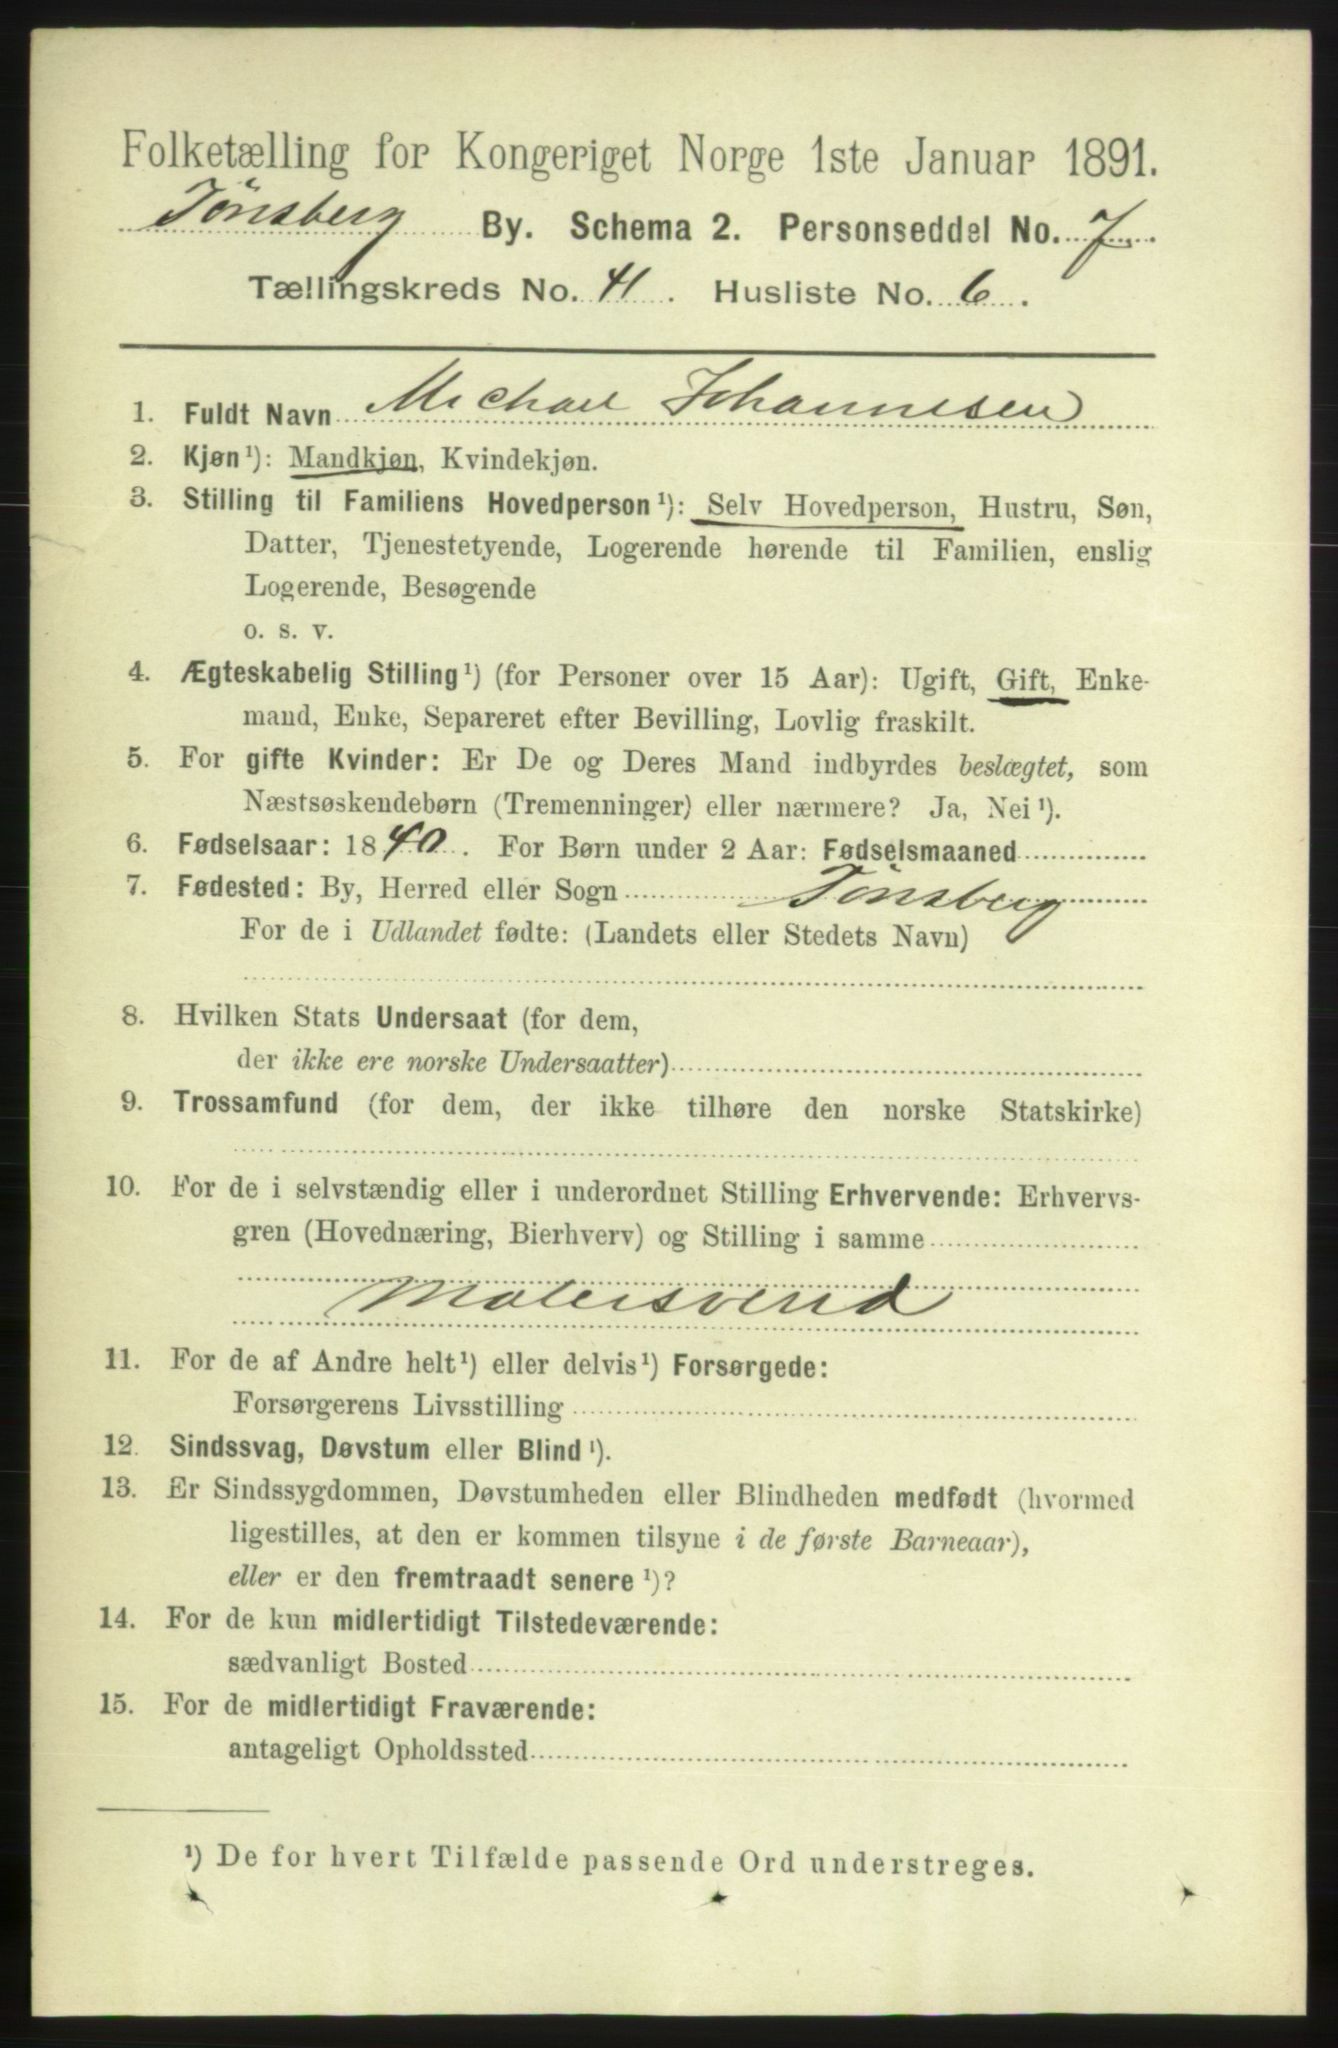 Folketælling for Kongeriget Norge 1ste Januar 1891.
Tönsberg By. Schema 2. Personseddel No. 7
Tællingskreds No. 41. Husliste No. 6.
1. Fuldt Navn Michael Johannesen
2. Kjøn ¹): Mandkjøn, Kvindekjøn.
3. Stilling til Familiens Hovedperson ¹): Selv Hovedperson, Hustru, Søn,
Datter, Tjenestetyende, Logerende hørende til Familien, enslig
Logerende, Besøgende
o. s. v.
4. Ægteskabelig Stilling ¹) (for Personer over 15 Aar): Ugift, Gift, Enke-
mand, Enke, Separeret efter Bevilling, Lovlig fraskilt.
5. For gifte Kvinder: Er De og Deres Mand indbyrdes beslægtet, som
Næstsøskendebørn (Tremenninger) eller nærmere? Ja, Nei ¹).
6. Fødselsaar: 1840. For Børn under 2 Aar: Fødselsmaaned
7. Fødested: By, Herred eller Sogn Tönsberg
For de i Udlandet fødte: (Landets eller Stedets Navn)
8. Hvilken Stats Undersaat (for dem,
der ikke ere norske Undersaatter)
9. Trossamfund (for dem, der ikke tilhøre den norske Statskirke)
10. For de i selvstændig eller i underordnet Stilling Erhvervende: Erhvervs-
gren (Hovednæring, Bierhverv) og Stilling i samme
Malersvend
11. For de af Andre helt ¹) eller delvis ¹) Forsørgede:
Forsørgerens Livsstilling
12. Sindssvag, Døvstum eller Blind ¹).
13. Er Sindssygdommen, Døvstumheden eller Blindheden medfødt (hvormed
ligestilles, at den er kommen tilsyne i de første Barneaar),
eller er den fremtraadt senere ¹)?
14. For de kun midlertidigt Tilstedeværende:
sædvanligt Bosted
15. For de midlertidigt Fraværende:
antageligt Opholdssted
¹) De for hvert Tilfælde passende Ord understreges.